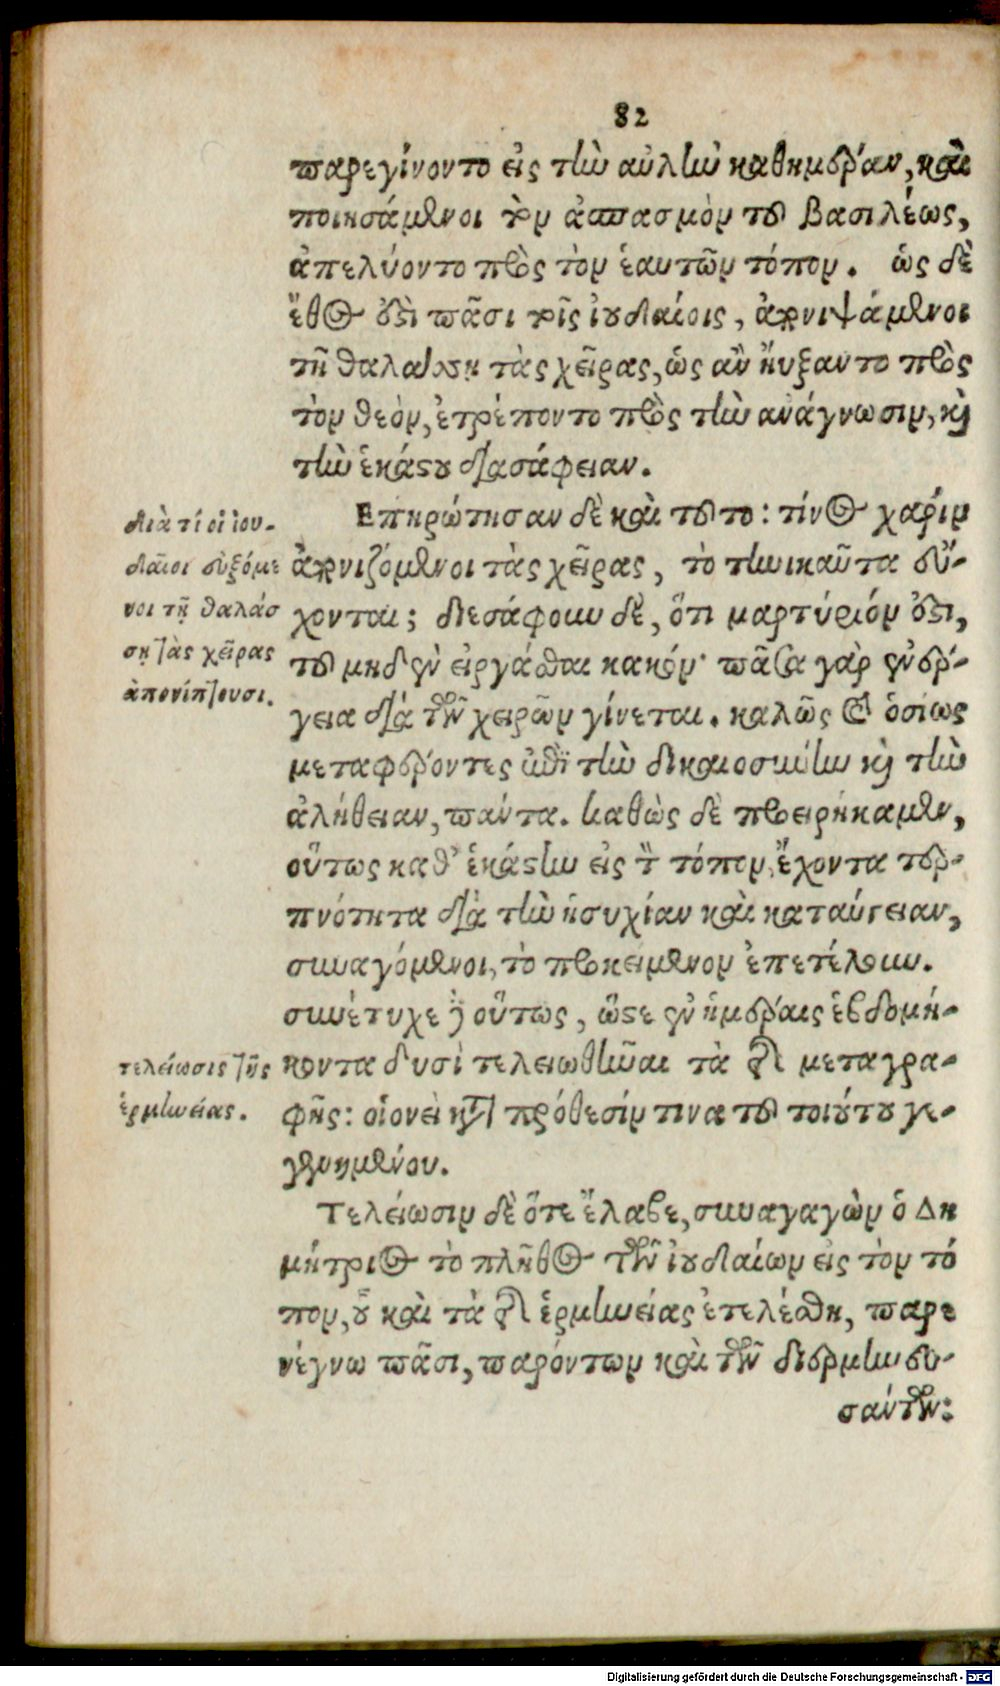 82
παρεγίνοντο εἰς τὴν αὐλὴν καθημέραν, καὶ
ποιησάμενοι τὸν ἀσπασμὸν τοῦ βασιλέως,
ἀπελύοντο πρὸς τὸν ἑαυτῶν τόπον. ὡς δὲ
ἔθος ἐστὶ πᾶσι τοῖς ἰουδαίοις, ἀπονιψάμενοι
τῇ θαλάσσῃ τὰς χεῖρας, ὡς ἂν ηὔξαντο πρὸς
τὸν θεὸν, ἐτρέποντο πρὸς τὴν ανάγνωσιν, καὶ
τὴν ἑκάστου διασάφειαν.
Επηρώτησαν δὲ καὶ τοῦτο: τίνος χάριν
ἀπονιζόμενοι τὰς χεῖρας, τὸ τηνικαῦτα εὔ-
χονται; διεσάφουν δὲ, ὅτι μαρτύριόν ἐστι,
τοῦ μηδὲν εἰργάσθαι κακόν· πᾶσα γὰρ ἐνέρ-
γεια διὰ τῶν χειρῶν γίνεται. καλῶς καὶ ὁσίως
μεταφέροντες ἐπὶ τὴν δικαιοσύνην καὶ τὴν
ἀλήθειαν, πάντα. καθὼς δὲ προειρήκαμεν,
οὕτως καθ' ἑκάστην εἰς τὸν τόπον, ἔχοντα τερ-
πνότητα διὰ τὴν ἡσυχίαν καὶ καταύγειαν,
συναγόμενοι, τὸ προκείμενον ἐπετέλουν.
συνέτυχε δὲ οὕτως, ὥστε ἐν ἡμέραις ἑβδομή-
κοντα δυσὶ τελειωθῆναι τὰ τῆς μεταγρα-
φῆς: οἱονεὶ κατὰ πρόθεσίν τινα τοῦ τοιούτου γε-
γενημένου.
Τελείωσιν δὲ ὅτε ἔλαβε, συναγαγὼν ὁ Δη
μήτριος τὸ πλῆθος τῶν ἰουδαίων εἰς τὸν τό
πον, οὗ καὶ τὰ τῆς ἑρμηνείας ἐτελέσθη, παρε
νέγνω πᾶσι, παρόντων καὶ τῶν διερμηνευ-
σάντων:
διὰ τί οἱ ἰου-
δαῖοι εὐξόμε
νοι τῇ θαλάσ
σῃ τὰς χεῖρας
ἀπονίπτουσι.
τελείωσις τῆς
ἑρμηνείας.
Digitalisierung gefördert durch die Deutsche Forschungsgemeinschaft - DFG